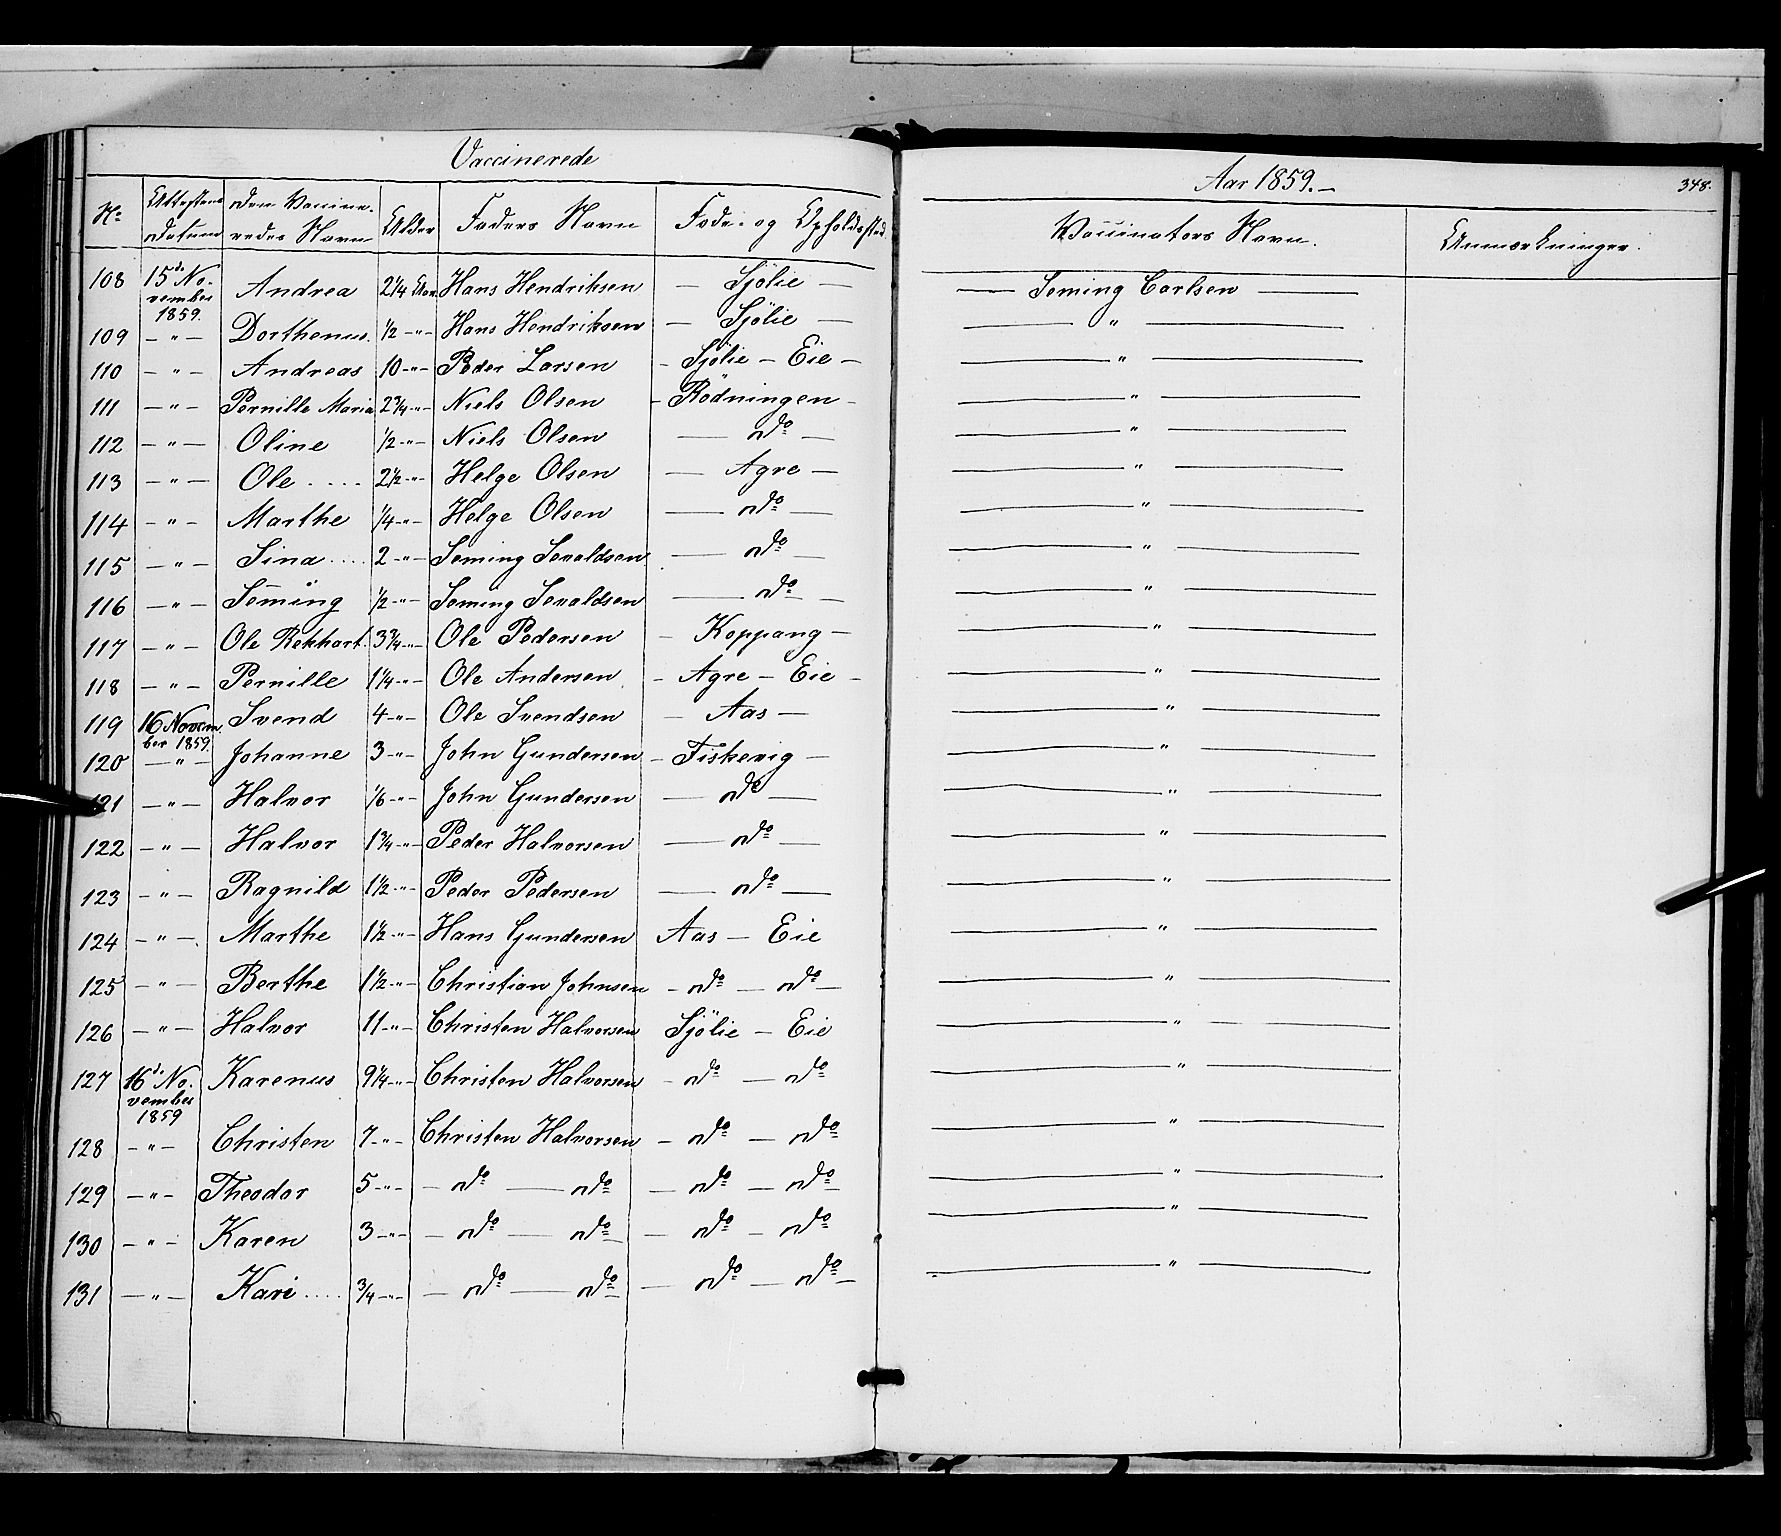 Vaccinerede
Aar 1859.–
348.
No Attestens Datum den Vaccineredes Navn Alder Faders Navn Føde- og Opholdssted Vaccinators Navn. Anmærkninger.
108 15de November 1859. Andrea 2 1/4 Aar Hans Hendriksen — Sjölie — — Seming Carlsen —
109 — " — Dorthenus. 1/2 — " — Hans Hendriksen — Sjölie — — " —
110 — " — Andreas 10 — " — Peder Larsen – Sjölie – Eie – — " —
111 — " — Pernille Maria 2 3/4 — " — Niels Olsen – Rödningen – — " —
112 — " — Oline 1/2 — " — Niels Olsen — do — — " —
113 — " — Ole .... 2 1/2 — " — Helge Olsen — Agre — — " —
114 — " — Marthe 1/4 — " — Helge Olsen — do — — " —
115 — " — Sina .... 2 — " — Seming Sevaldsen — do — — " —
116 — " — Seming 1/2 — " — Seming Sevaldsen — do — — " —
117 — " — Ole Rekhart. 3 3/4 — " — Ole Pedersen – Koppang – — " —
118 — " — Pernille 1 1/4 — " — Ole Andersen – Agre – Eie – — " —
119 16 November 1859. Svend 4 — " — Ole Svendsen – Aas — — " —
120 — " — Johanne 3 — " — John Gundersen – Fiskevig — — " —
121 — " — Halvor 1/6 — " — John Gundersen — do — — " —
122 — " — Halvor 1 3/4 — " — Peder Halvorsen — do — — " —
123 — " — Ragnild 1 1/2 — " — Peder Pedersen — do — — " —
124 — " — Marthe 1 1/2 — " — Hans Gundersen Aas — Eie — " —
125 — " — Berthe 1 1/2 — " — Christian Johnsen – do — do — — " —
126 — " — Halvor 11 — " — Christen Halvorsen Sjölie – Eie — " —
127 16de November 1859 Karenus 9 1/4 — " — Christen Halvorsen – do — do — " —
128 — " — Christen 7 — " — Christen Halvorsen – do — do — " —
129 — " — Theodor 5 — " — – do — do — do — do — " —
130 — " — Karen 3 — " — – do — do — do – do — " —
131 — " — Kari .... 3/4 — " — — do — do — do — do — — " —